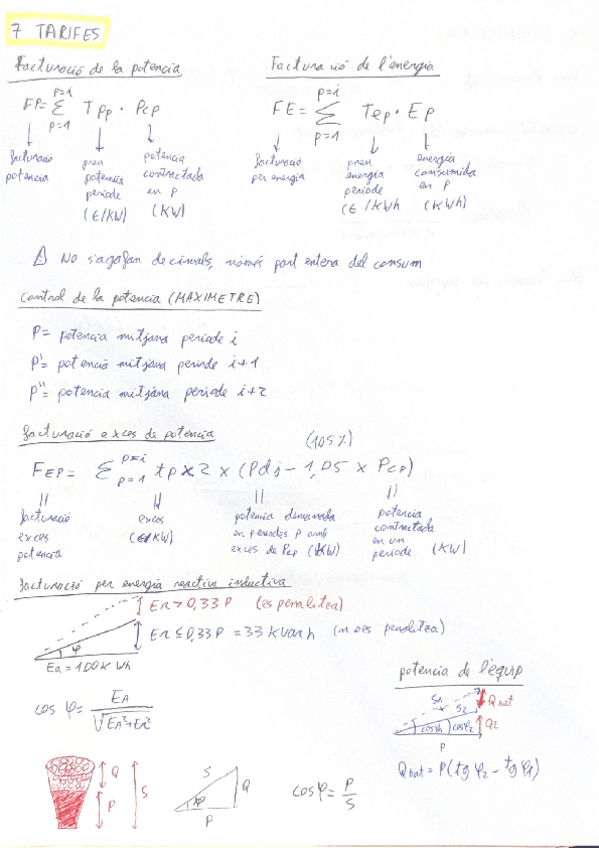 7 TARIFES
Facturació de la potencia
FP= Σ p=1 p=i Tpp · Pcp
facturació potencia
preu potencia periode (€/KW)
potencia contractada en P (KW)
Facturació de l'energia
FE= Σ p=1 p=i Tep · Ep
facturació per energia
preu energia periode (€/KWh
energia consumida en P (KWh)
⚠ No s'agafan decimals, només part entera del consum
Control de la potencia (MAXIMETRE)
P= potencia mitjana periode i
P'= potencia mitjana periode i+1
P''= potencia mitjana periode i+2
facturació exces de potencia
(105%)
FEP= Σ p=1 p=i tp x 2 x (Pdj - 1,05 x Pcp)
facturació exces potencia
exces (€/KW)
potencia demanada en periodes P amb exces de Pcp (KW)
potencia contractada en un periode (KW)
facturació per energia reactiva inductiva
Er > 0,33 P (es penalitza)
Er ≤ 0,33 P = 33 kvarh (no es penalitza)
φ
Ea = 100 K Wh
cos φ = EA / √EA²+Er²
potencia de l'equip
S1
S2
Q bat
cosφ1
cosφ2
Q2
P
Qbat = P(tg φ2 - tg φ1)
Q
P
S
S
φ
Q
P
cosφ = P/S